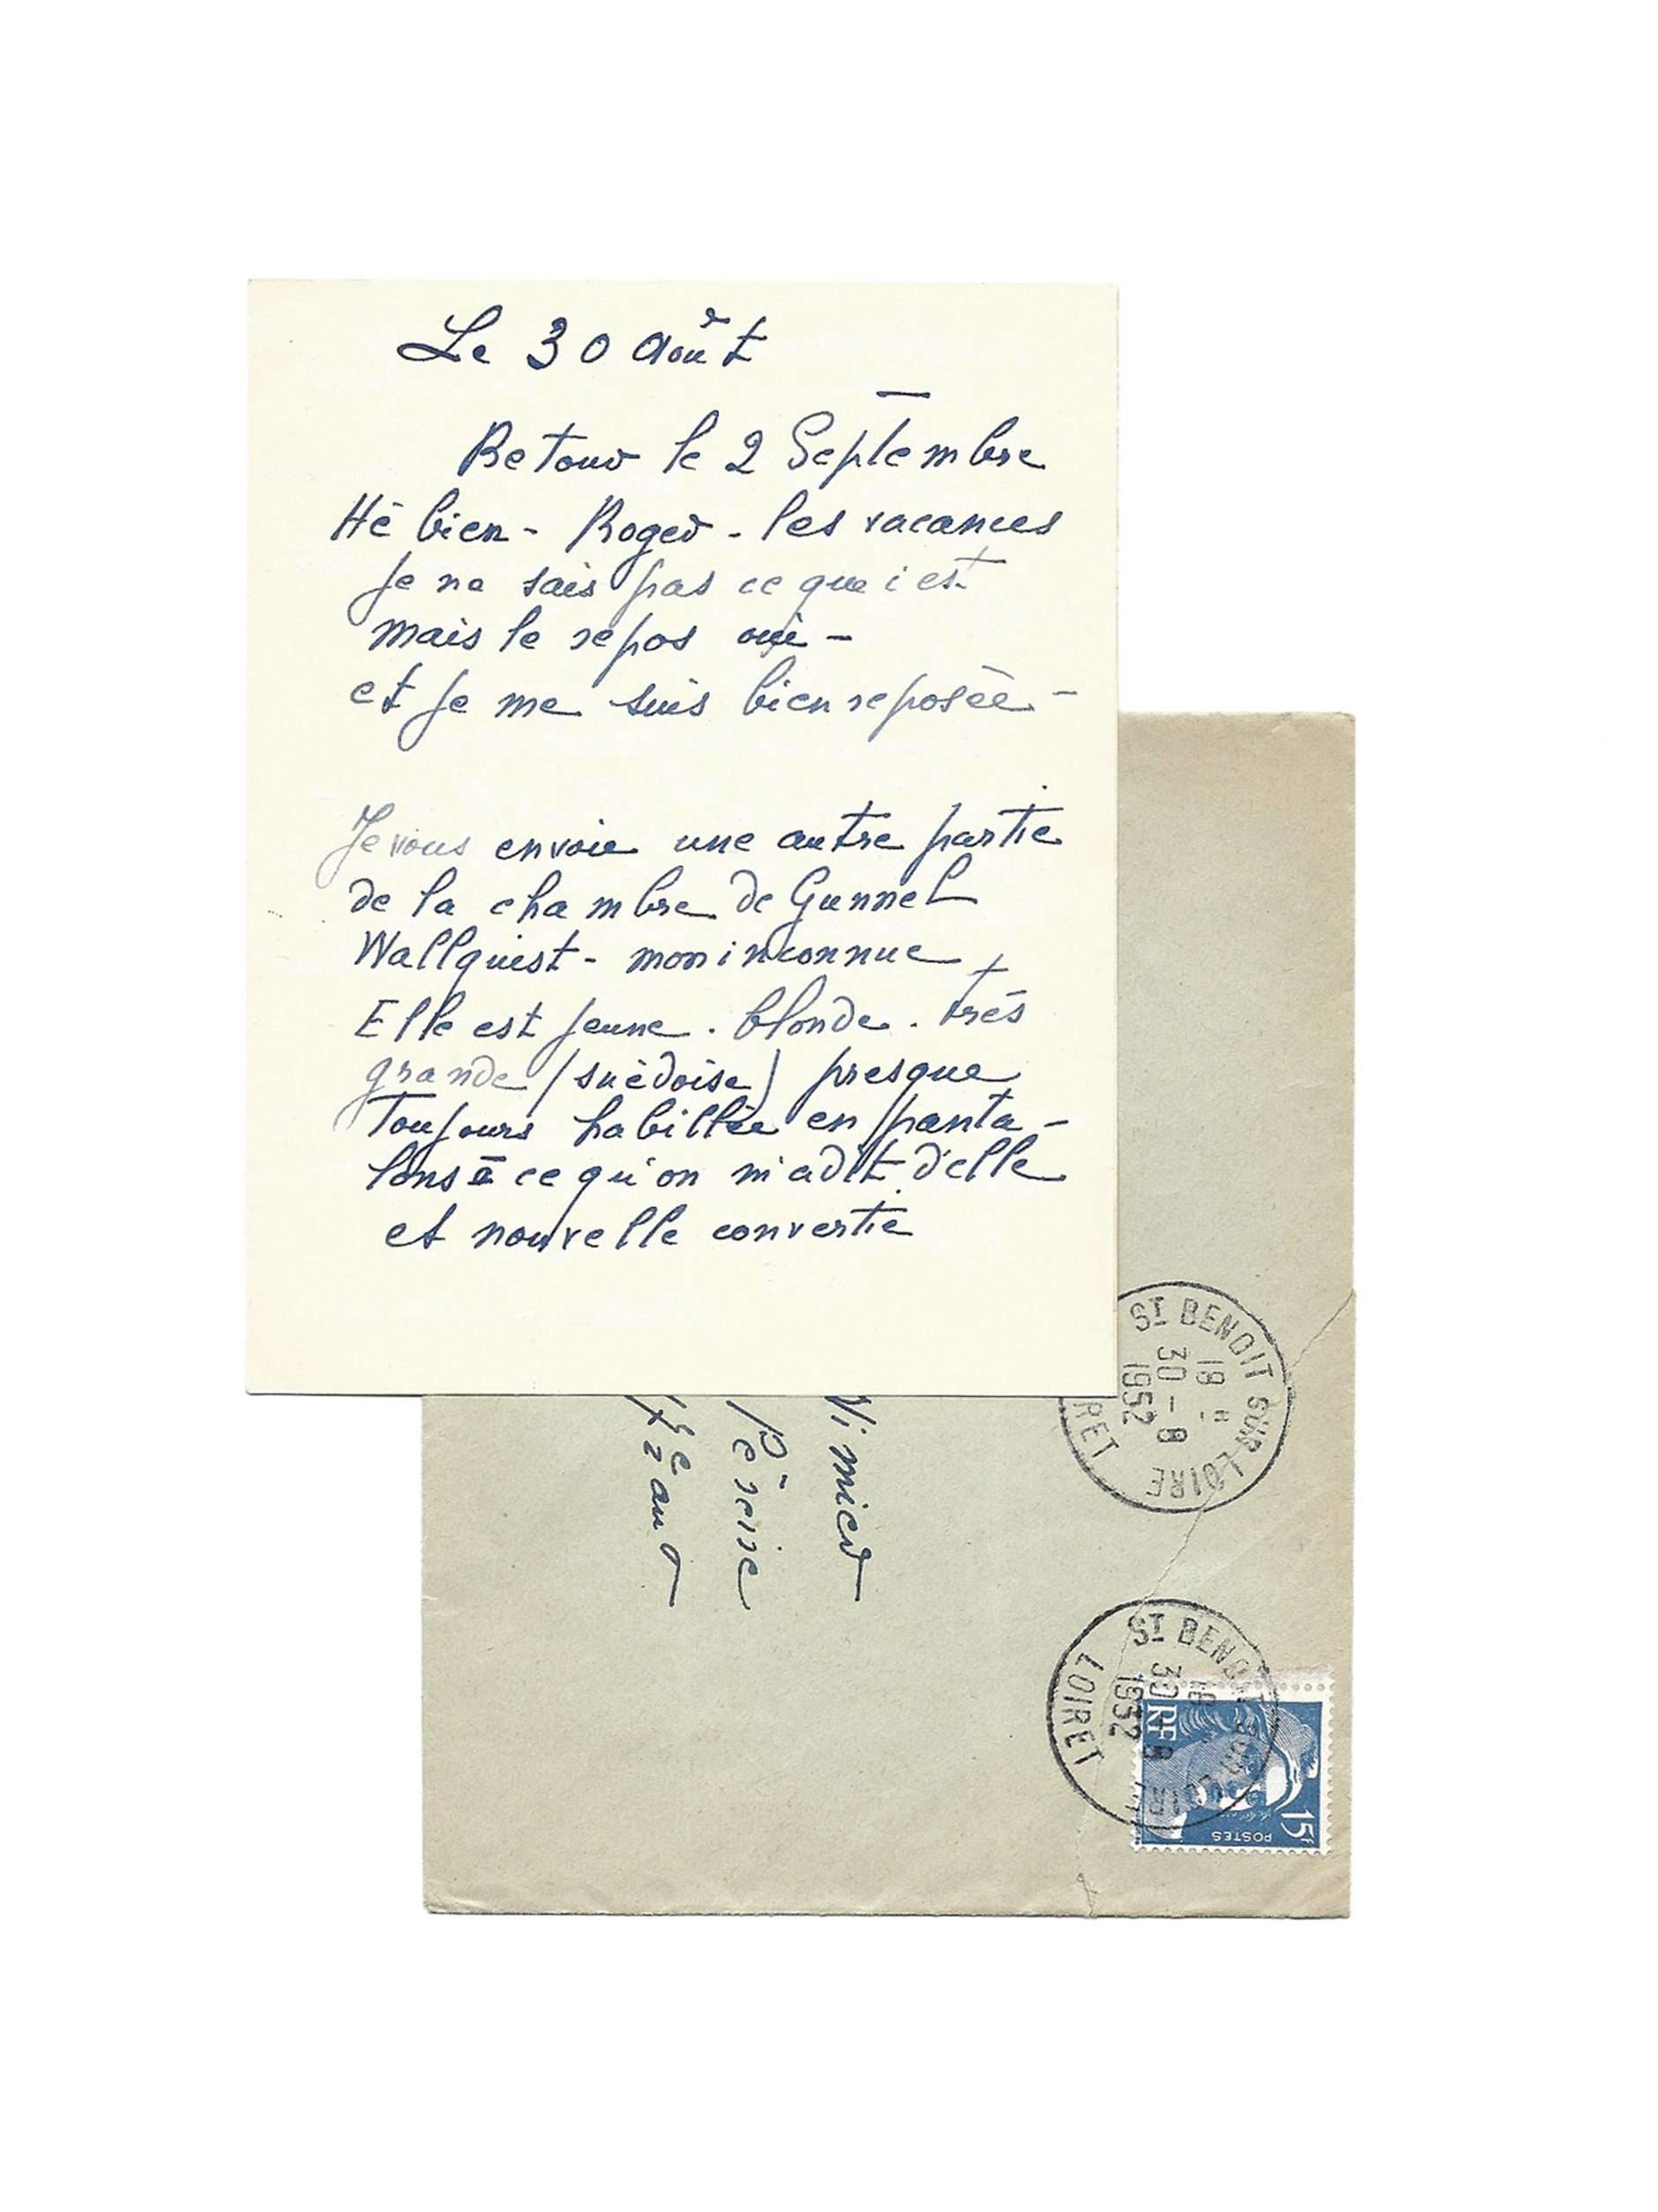 Le 30 août
Retour le 2 Septembre
Hé bien - Roger - les vacances
je ne sais pas ce que c'est
mais le repos oui -
et je me suis bien reposée -
Je vous envoie une autre partie
de la chambre de Gunnel
Wallquist - mon inconnue
Elle est jeune . blonde . très
grande (suédoise) presque
toujours habillée en panta -
lons à ce qu'on m'a dit d'elle
et nouvelle convertie
ST BENOIT SUR LOIRE
18 H
30 - 8
1952
RET
Nimier
Péreire
ST BENOIT SUR LOIRE
18
30 - 8
1952
LOIRET
RF
POSTES
15f